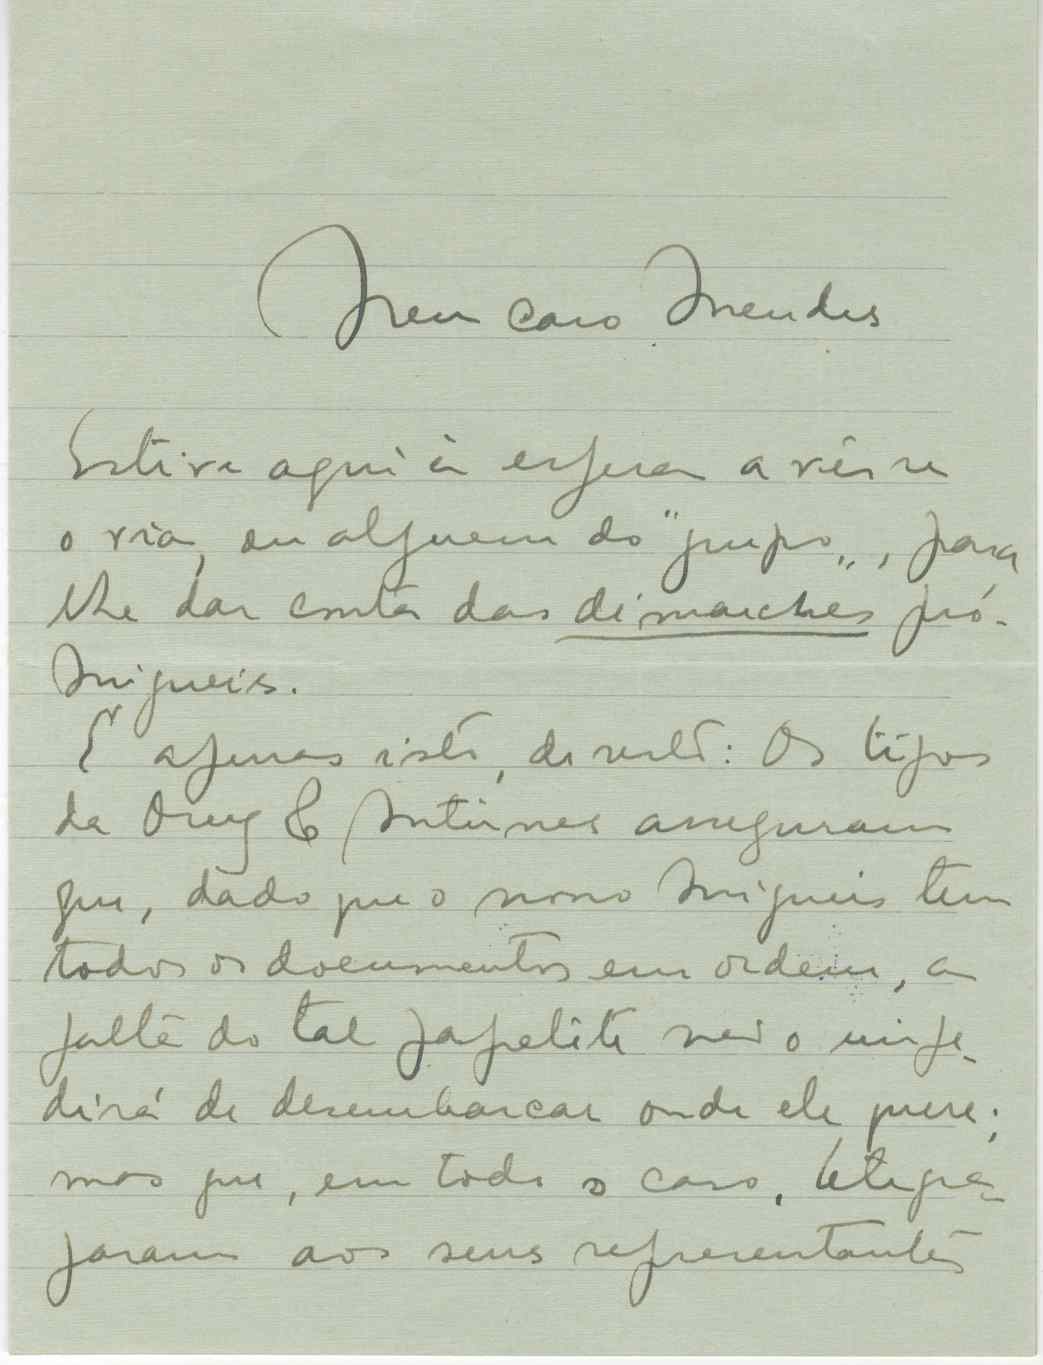 Meu caro Mendes
Estive aqui à espera a vêr se
o via, ou alguem do "grupo", para
lhe dar conta das démarches pró-
Migueis.
É apenas isto, de resto: Os tipos
da Orey & Antunes asseguram
que, dado que o nosso Migueis tem
todos os documentos em ordem, a
falta do tal papelito não o impe-
dirá de desembarcar onde ele quere;
mas que, em todo o caso, telegra-
faram aos seus representantes